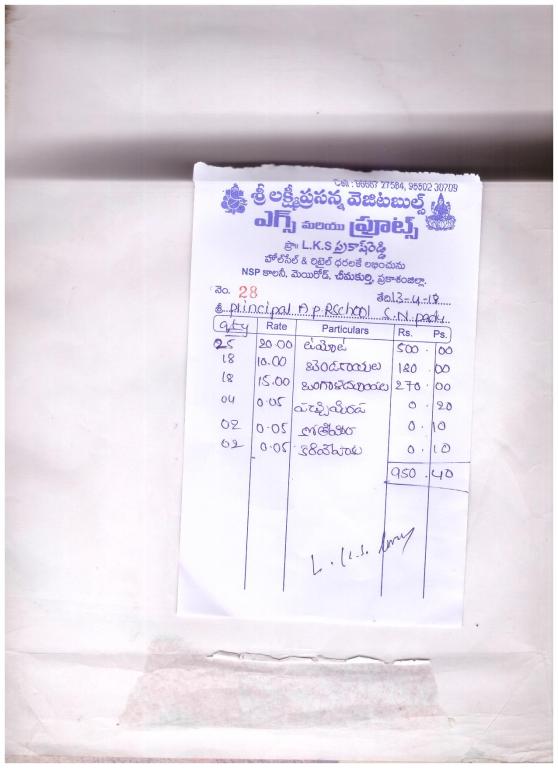 Cell : 99667 27584, 95502 30709
శ్రీ లక్ష్మీప్రసన్న వెజిటబుల్స్
ఎగ్స్ మరియు ఫ్రూట్స్
ప్రొ. L.K.S ప్రకాష్‌రెడ్డి
హోల్‌సేల్ & రిటైల్ ధరలకే లభించును
NSP కాలనీ, మెయిన్‌రోడ్, చీమకుర్తి, ప్రకాశంజిల్లా.
నెం. 28 తేది13-4-18
శ్రీ Principal A.P.RSchool C.N.padu
Qty Rate Particulars Rs. Ps.
25 20.00 టమోట 500.00
18 10.00 బెండకాయలు 180.00
18 15.00 బంగాళదుంపలు 270.00
04 0.05 పచ్చిమిరప 0.20
02 0.05 కొతిమీర 0.10
02 0.05 కరివేపాకు 0.10
950.40
L.K.S.